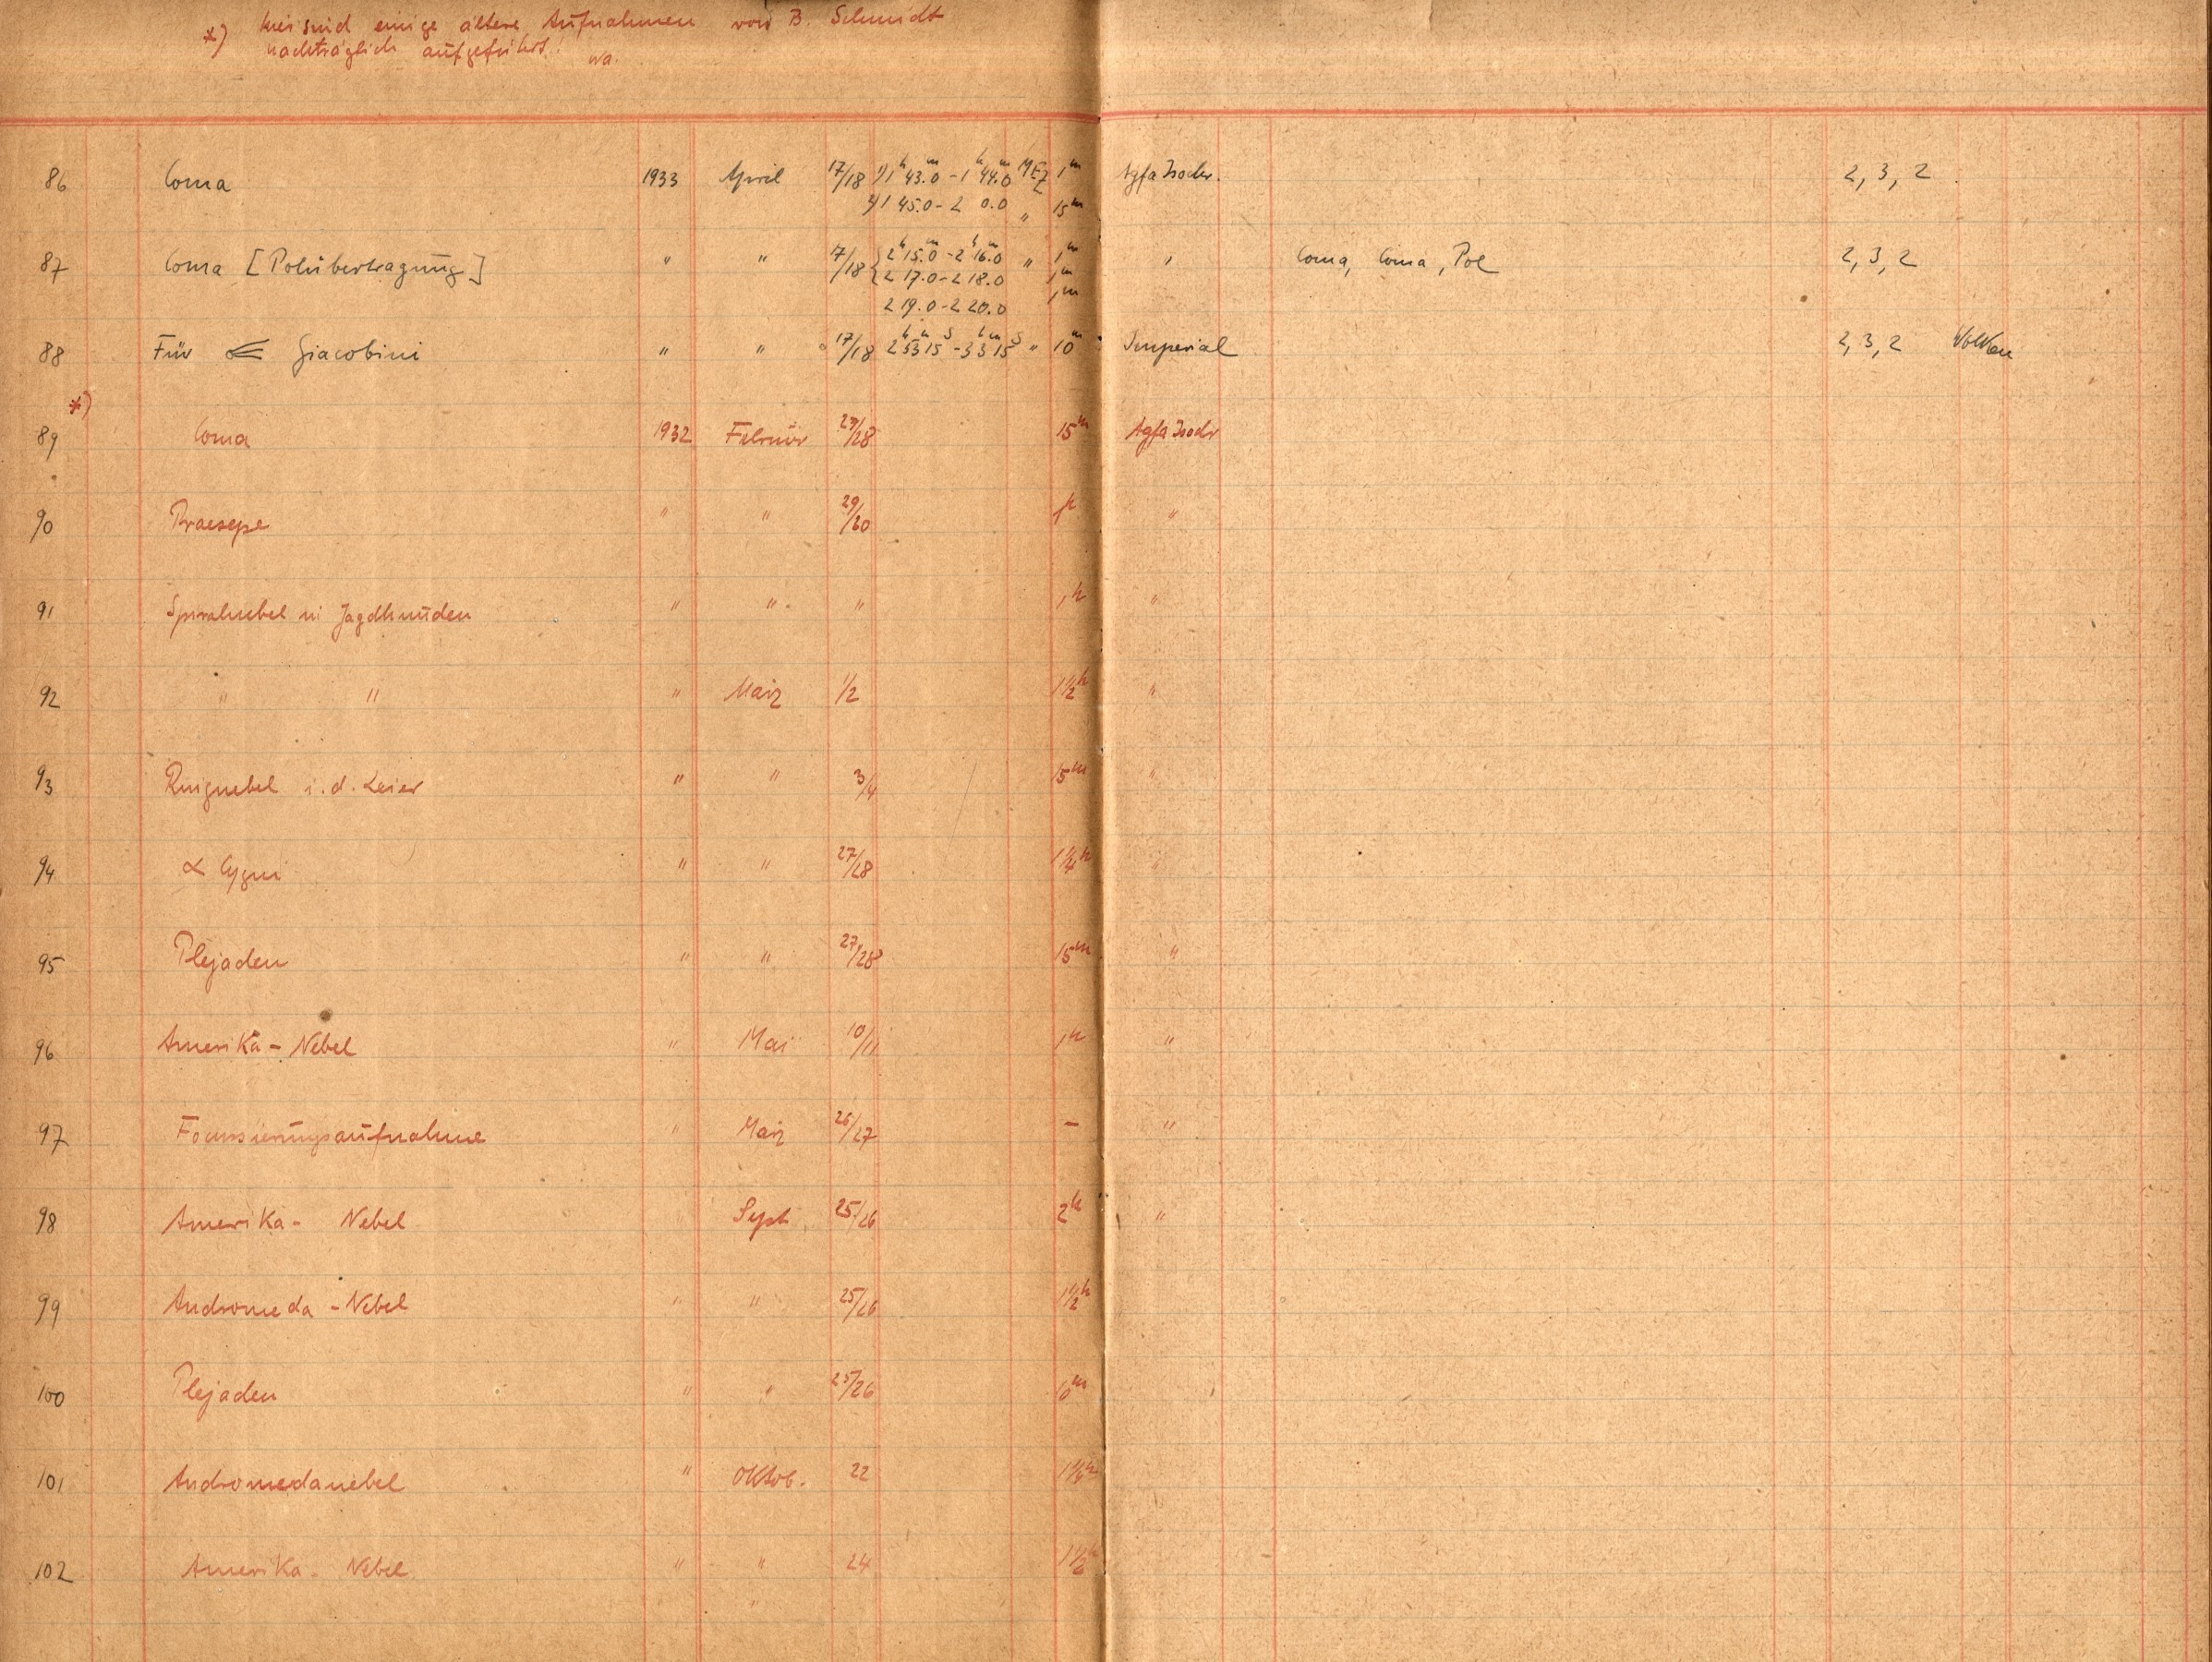 *) hier sind einige ältere Aufnahmen von B. Schmidt
nachträglich aufgeführt. Wa.
86 Coma 1933 April 17/18 1) 1h 43m.0 - 1h 44m.0 MEZ 1m Agfa Isochr. 2, 3, 2
2) 1 45.0 - 2 0.0 " 15m
87 Coma [Polübertragung] " " 17/18 { 2h 15m.0 - 2h 16m.0 " 1m " Coma, Coma, Pol 2, 3, 2
2 17.0 - 2 18.0 1m
2 19.0 - 2 20.0 1m
88 Für Giacobini " " 17/18 2h 53m 15s - 3h 3m 15s " 10m Imperial 2, 3, 2 Wolken
*)
89 Coma 1932 Februar 27/28 15m Agfa Isochr
90 Praesepe " " 29/30 1h "
91 Spiralnebel in Jagdhunden " " " 1h "
92 " " " März 1/2 1 1/2h "
93 Ringnebel i. d. Leier " " 3/4 15m "
94 α Cygni " " 27/28 1 1/4h "
95 Plejaden " " 27/28 15m "
96 Amerika - Nebel " Mai 10/11 1h "
97 Focussierungsaufnahme " März 26/27 - "
98 Amerika - Nebel Sept. 25/26 2h "
99 Andromeda - Nebel " " 25/26 1 1/2h
100 Plejaden " " 25/26 10m
101 Andromedanebel " Oktob. 22
102 Amerika - Nebel " " 24
"